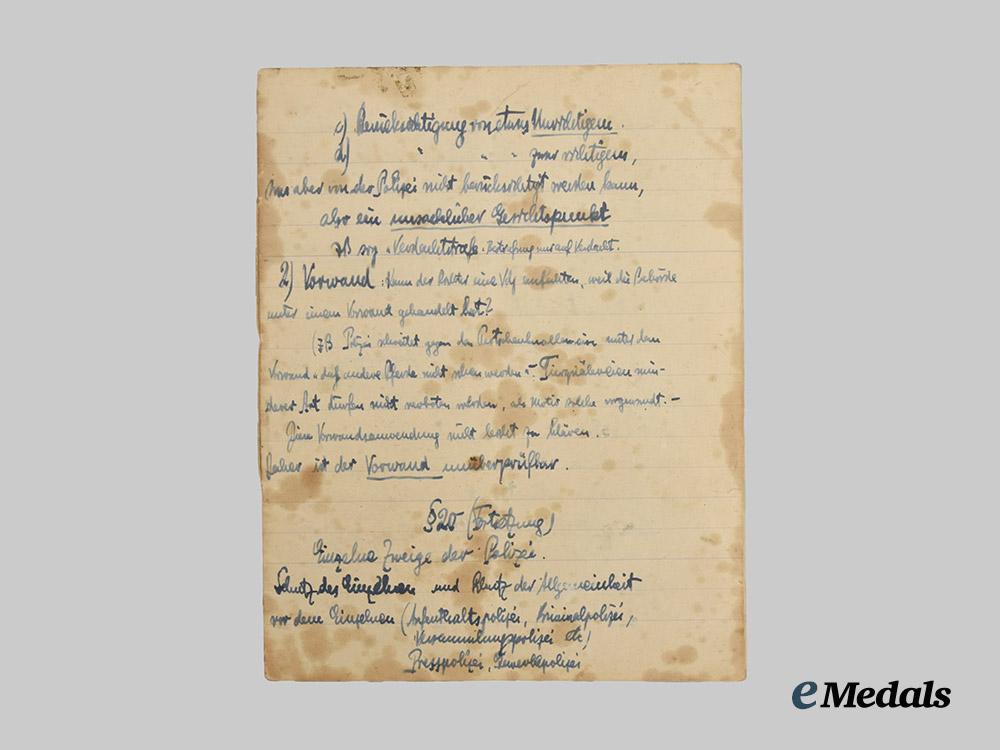 c) Berücksichtigung von etwas Unwichtigem.
d) " " " zwar wichtigem,
was aber von der Polizei nicht berücksichtigt werden kann,
also ein unsachlicher Gesichtspunkt
zB sog. Verdachtstrafe. Bestrafung nur auf Verdacht.
2) Vorwand: Kann der Richter eine Vfg anfechten, weil die Behörde
unter einem Vorwand gehandelt hat?
(zB Polizei schreitet gegen den unter dem
Vorwand "daß andere Pferde nicht scheu werden". – min-
derer Art dürfen nicht verboten werden, als Motiv solche –
Diese Vorwandsanwendung nicht leicht zu klären.
Daher ist der Vorwand unüberprüfbar.
§ 20 (Fortsetzung)
Einzelne Zweige der Polizei.
Schutz des Einzelnen und Schutz der Allgemeinheit
vor dem Einzelnen (Aufenthaltspolizei, Kriminalpolizei,
Versammlungspolizei etc)
Presspolizei, Gewerbepolizei
eMedals